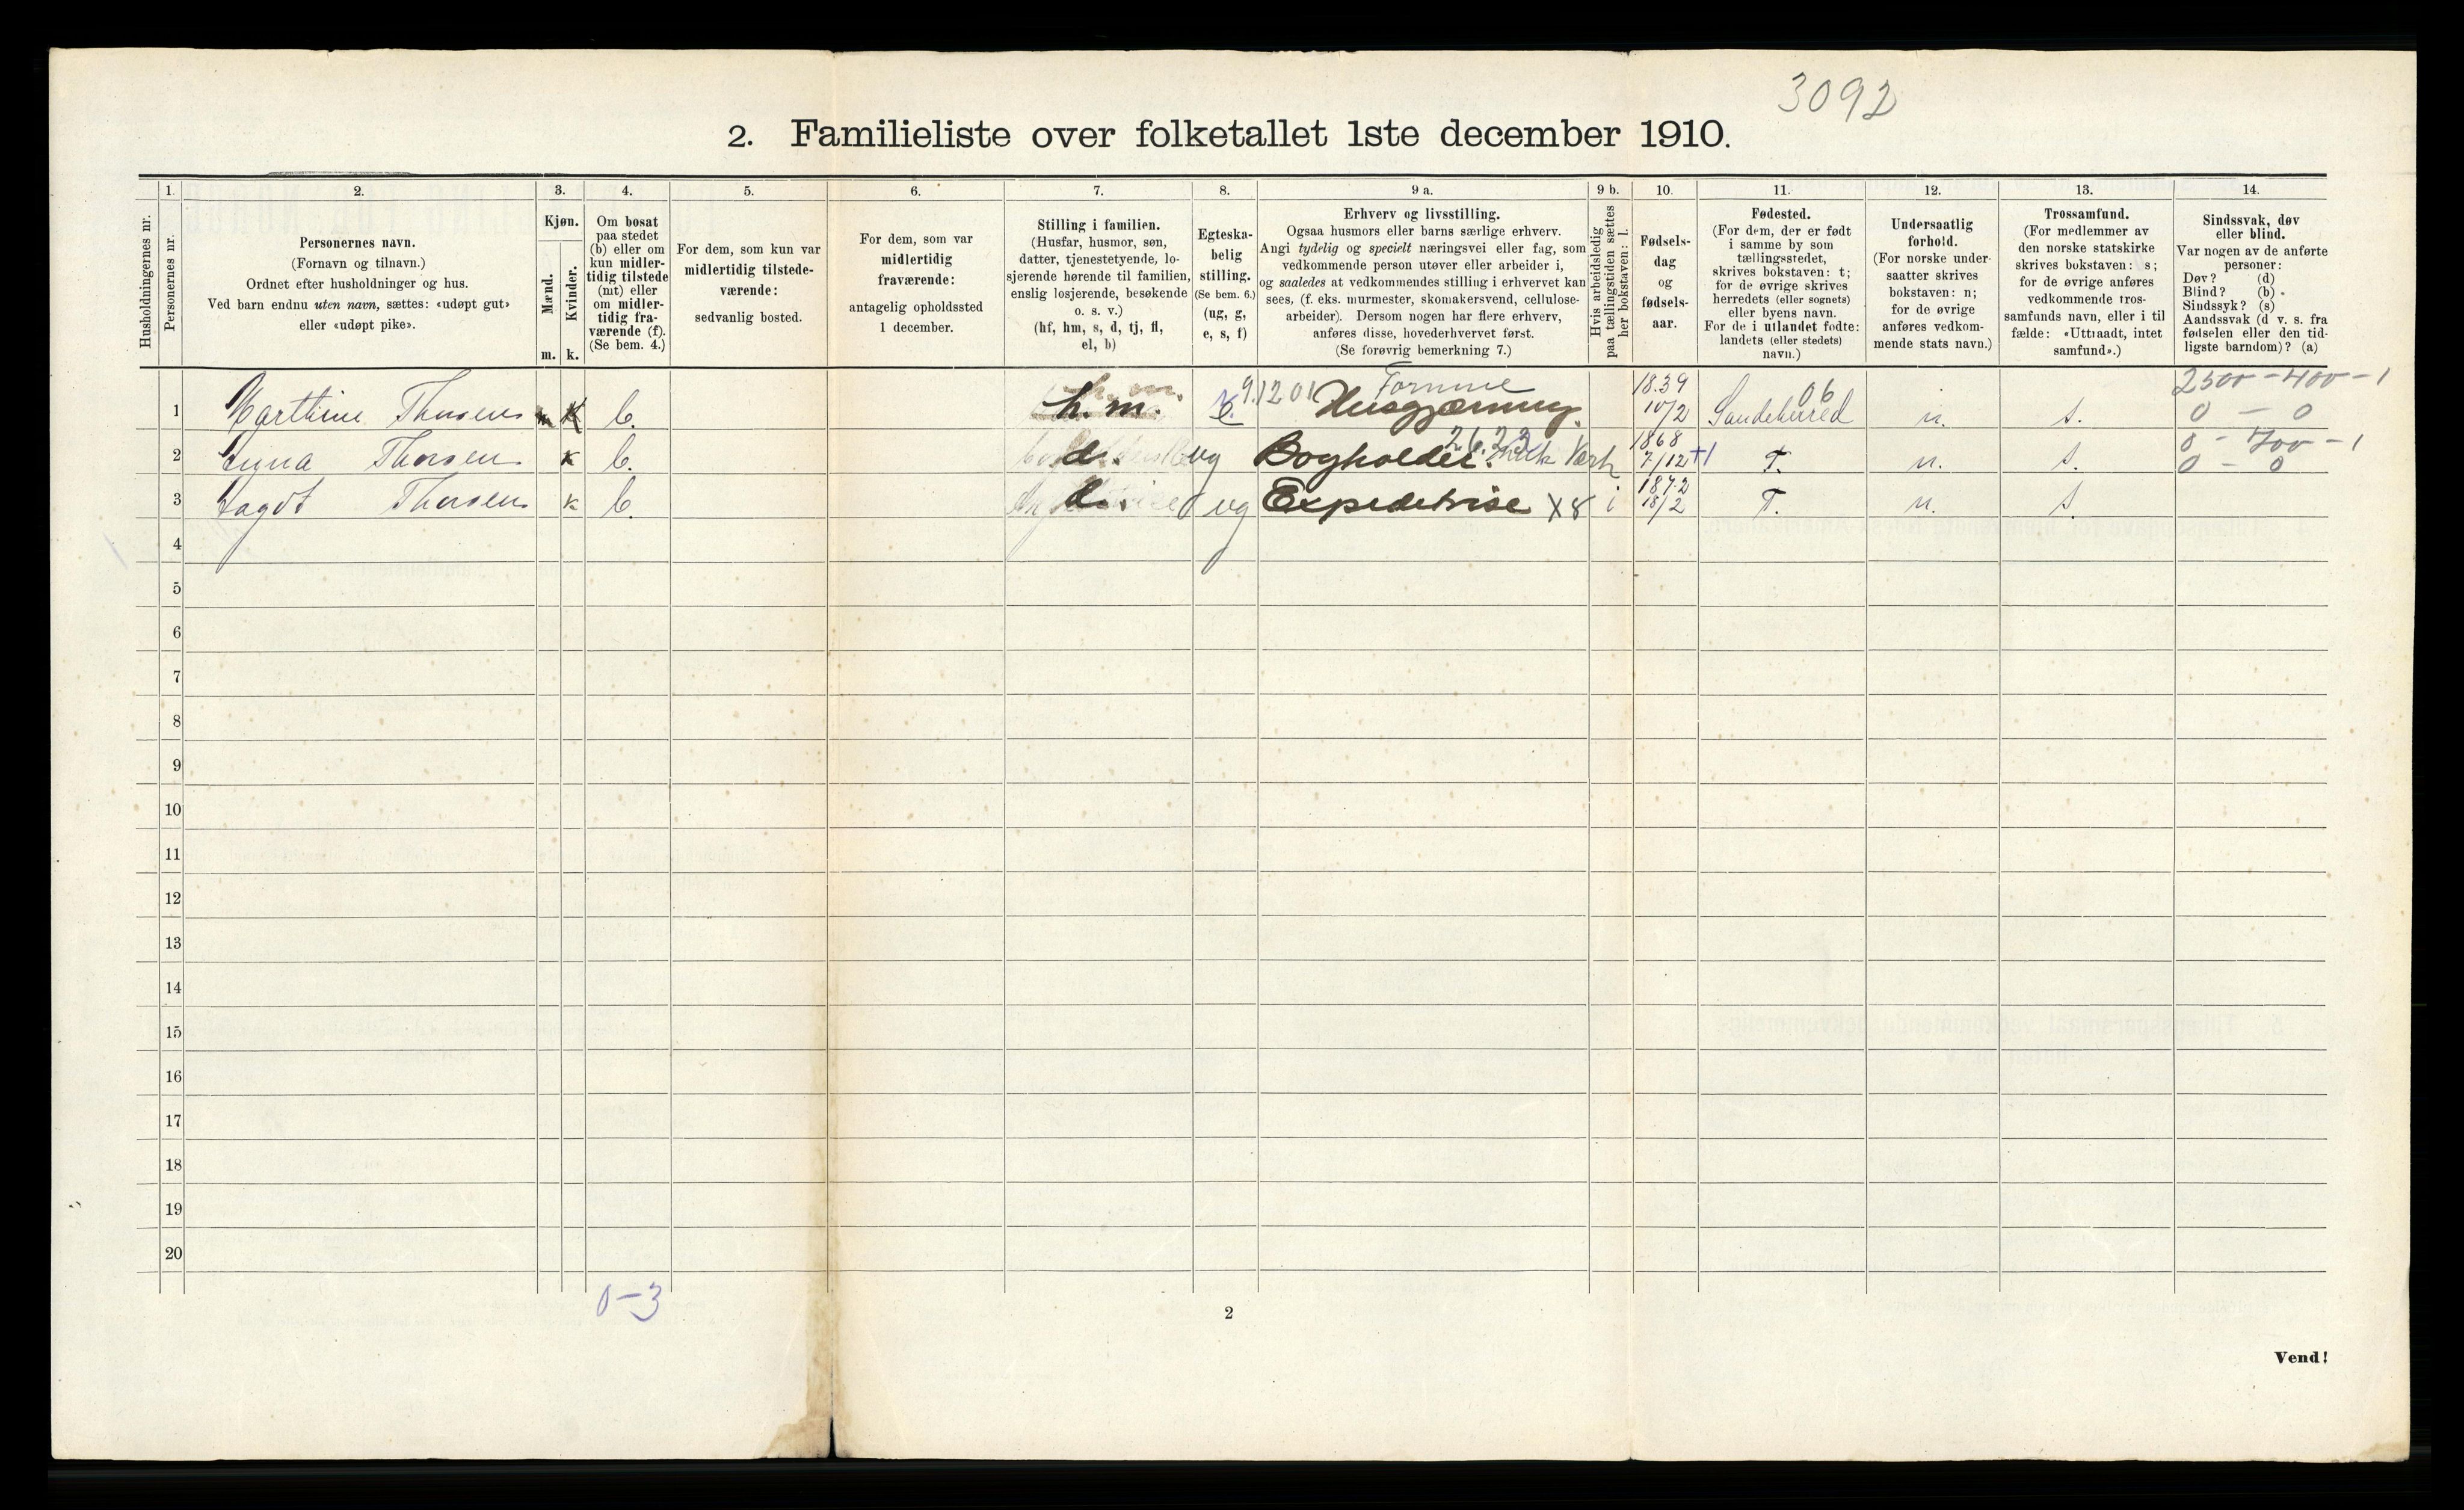 3092
2. Familieliste over folketallet 1ste december 1910.
1. 2. 3. 4. 5. 6. 7. 8. 9 a. 9 b. 10. 11. 12. 13. 14.
Husholdningernes nr.
Personernes nr.
Personernes navn.
(Fornavn og tilnavn.)
Ordnet efter husholdninger og hus.
Ved barn endnu uten navn, sættes: «udøpt gut»
eller «udøpt pike».
Kjøn.
Mænd.
Kvinder.
m. k.
Om bosat
paa stedet
(b) eller om
kun midler-
tidig tilstede
(mt) eller
om midler-
tidig fra-
værende (f).
(Se bem. 4.)
For dem, som kun var
midlertidig tilstede-
værende:
sedvanlig bosted.
For dem, som var
midlertidig
fraværende:
antagelig opholdssted
1 december.
Stilling i familien.
(Husfar, husmor, søn,
datter, tjenestetyende, lo-
sjerende hørende til familien,
enslig losjerende, besøkende
o. s. v.)
(hf, hm, s, d, tj, fl,
el, b)
Egteska-
belig
stilling.
(Se bem. 6.)
(ug, g,
e, s, f)
Erhverv og livsstilling.
Ogsaa husmors eller barns særlige erhverv.
Angi tydelig og specielt næringsvei eller fag, som
vedkommende person utøver eller arbeider i,
og saaledes at vedkommendes stilling i erhvervet kan
sees, (f. eks. murmester, skomakersvend, cellulose-
arbeider). Dersom nogen har flere erhverv,
anføres disse, hovederhvervet først.
(Se forøvrig bemerkning 7.)
Hvis arbeidsledig
paa tællingstiden sættes
her bokstaven: l.
Fødsels-
dag
og
fødsels-
aar.
Fødested.
(For dem, der er født
i samme by som
tællingsstedet,
skrives bokstaven: t;
for de øvrige skrives
herredets (eller sognets)
eller byens navn.
For de i utlandet fødte:
landets (eller stedets)
navn.)
Undersaatlig
forhold.
(For norske under-
saatter skrives
bokstaven: n;
for de øvrige
anføres vedkom-
mende stats navn.)
Trossamfund.
(For medlemmer av
den norske statskirke
skrives bokstaven: s;
for de øvrige anføres
vedkommende tros-
samfunds navn, eller i til
fælde: «Uttraadt, intet
samfund».)
Sindssvak, døv
eller blind.
Var nogen av de anførte
personer:
Døv? (d)
Blind? (b)
Sindssyk? (s)
Aandssvak (d v. s. fra
fødselen eller den tid-
ligste barndom)? (a)
h. m. 9.1201 Formue 1839 06 2500-400-1
1 Marthine Thorsen k b. h. m. e. Husgjærning. 10/2 Sandeherred n. s. 0 - 0
26.22 1868 0 - 700 - 1
2 Signa Thorsen k b. d. ug Bogholder. 7/12 +1 T. n. s. 0 - 0
1872
3 Thorsen k b. d. ug Expeditrise X8 i 18/2 T. n. s.
4
5
6
7
8
9
10
11
12
13
14
15
16
17
18
19
20
0-3
2
Vend!